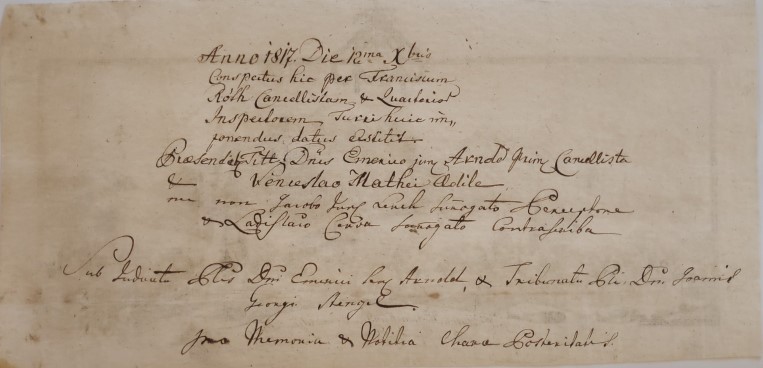 Anno 1817. Die 12ma Xbris
Conspectus hic per Franciscum
Róth Cancellistam & Quartirior
Inspectorem Turri huic im„
ponendus datus extitit.
Præsend: Titt: Dnis Emerico jun Arnold Prim Cancellista
& Venceslao Mathei Ædile
nec non Jacobo Surrogato Perceptore
& Ladislao Surrogato Contrascriba
Sub Judicatu Plis Dni Emerici Arnold, & Tribunatu Plis Dni Joannis
Georgi Stengel.
pro Memoria & Notitia Charæ Posteritatis.